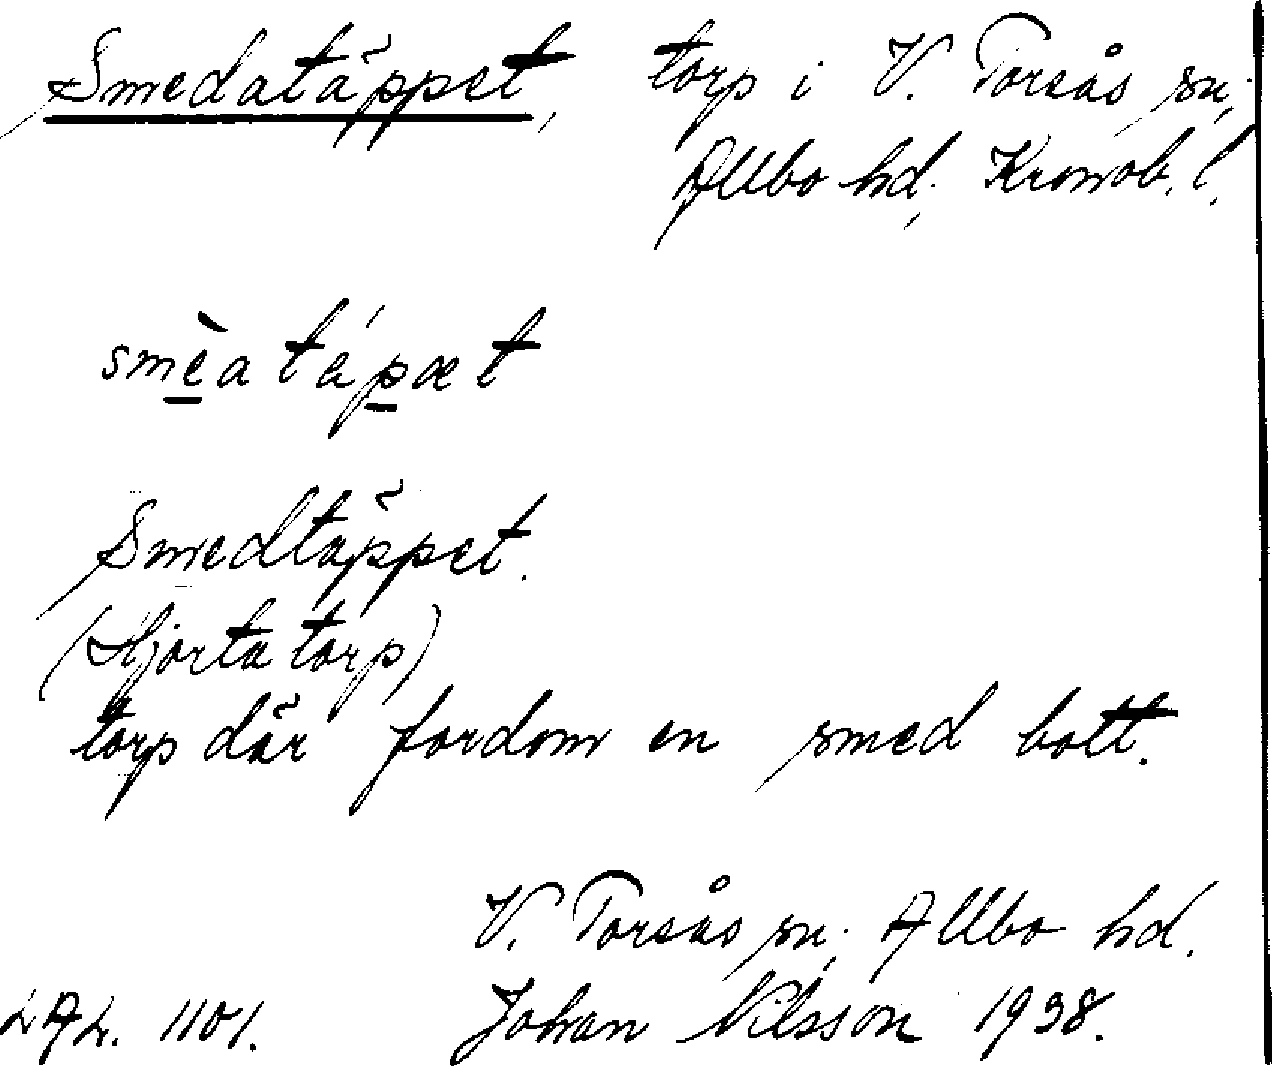 Smedatäppet, torp i V. Torsås sn,
Allbo hd, Kronob. l.
smèatápæt
Smedtäppet.
(Hjortatorp)
torp där fordom en smed bott.
V. Torsås sn. Allbo hd.
LAL. 1101. Johan Nilsson 1938.